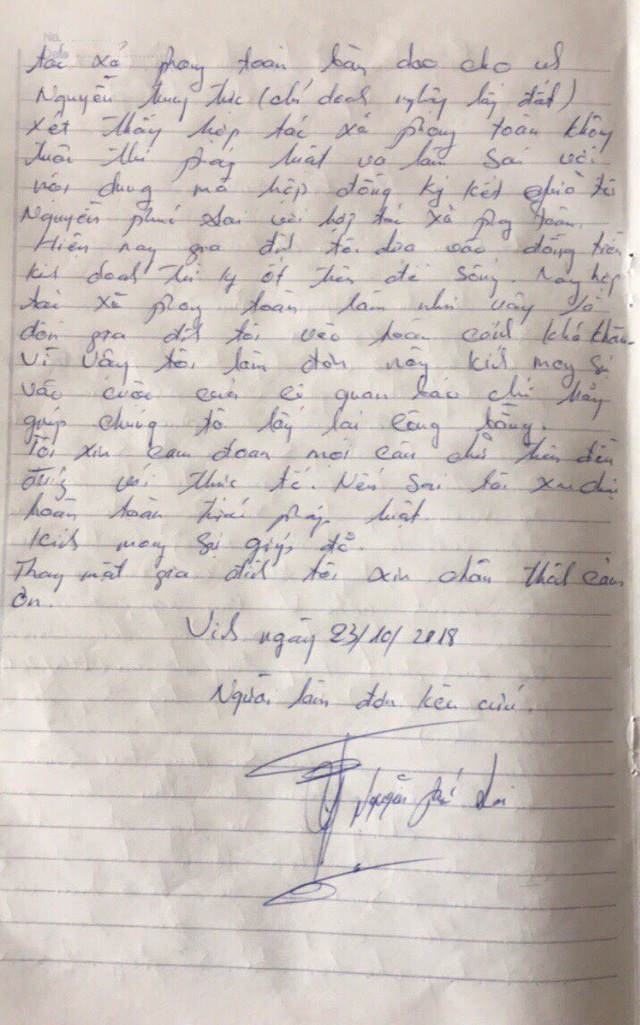 No.
Date
tác xã phong toàn bàn dao cho
Nguyễn trung thực (chỉ doah nghiệp lấy đất)
xét thấy hợp tác xã phong toàn không
tuân thủ pháp luật và làm sai với
nội dung mà hợp đồng ký kết giữa tôi
Nguyễn phú với hợp tác xã phong toàn.
Hiện nay gia đìh tôi dựa vào đồng tiền
kih doah thu ốt đề sống. Nay hợp
tác xã phong toàn làm như vậy
dồn gia đìh tôi vào hoàn cảh khó khăn
vì vậy tôi làm đơn này kíh mong sự
vào cuộc của cơ quan báo chí hãy
giúp chúng tô lấy lại công bằng.
Tôi xin cam đoan mọi câu chữ trên đều
đúng với thực tế. Nếu sai tôi xin chịu
hoàn toàn trước pháp luật
Kíh mong sự giúp đỡ.
Thay mặt gia đìh tôi xin chân thàh cảm
ơn.
Vih ngày 23/10/2018
Người làm đơn kêu cứu.
Nguyễn phú